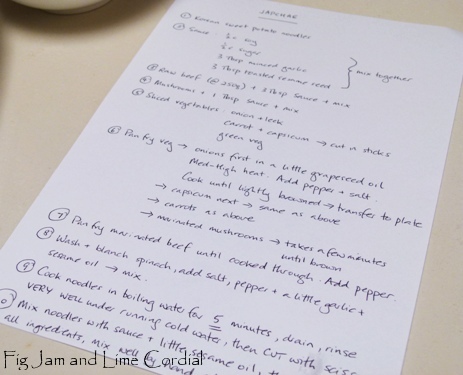 JAPCHAE
① Korean sweet potato noodles
② Sauce: ½c soy
¼c sugar
3 tbsp minced garlic
3 tbsp roasted sesame seed
} mix together
③ Raw beef (@ 250g) + 3 tbsp sauce + mix
④ Mushrooms + 1 tbsp sauce + mix
⑤ Sliced vegetables: onion + leek
carrot + capsicum → cut in sticks
green veg
⑥ Pan fry veg → onions first in a little grapeseed oil
Med-High heat. Add pepper + salt.
Cook until lightly browned → transfer to plate
→ capsicum next → same as above
→ carrots as above
→ marinated mushrooms → takes a few minutes
until brown
⑦ Pan fry marinated beef until cooked through. Add pepper.
⑧ Wash + blanch spinach, add salt, pepper + a little garlic +
sesame oil → mix.
⑨ Cook noodles in boiling water for 5 minutes, drain, rinse
VERY WELL under running cold water, then CUT with
Mix noodles with sauce + little sesame oil,
all ingredients, mix well by hand
Fig Jam and Lime Cordial